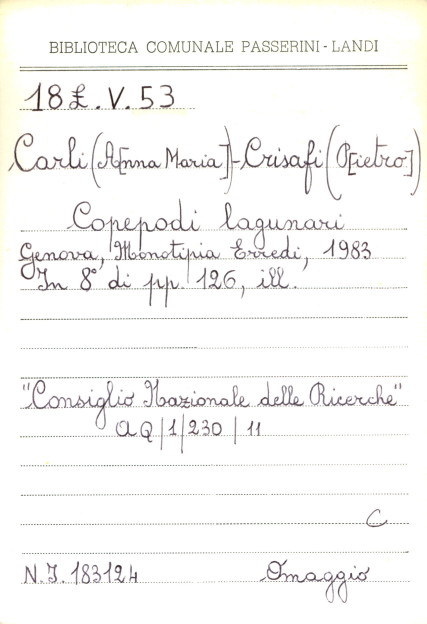 BIBLIOTECA COMUNALE PASSERINI - LANDI
18£.V.53
Carli (A[nna Maria]) - Crisafi (P[ietro])
Copepodi lagunari
Genova, Monotipia Erredi, 1983
In 8° di pp. 126, ill.
"Consiglio Nazionale delle Ricerche"
AQ/1/230/11
C
N.I. 183124 Omaggio